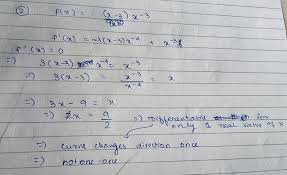 ② f(x) = (x-3) x⁻³
f'(x) = -3(x-3)x⁻⁴ + x⁻³
f'(x) = 0
⇒ 3(x-3) x⁻⁴ = x⁻³
⇒ 3(x-3) = x⁻³/x⁻⁴ = x
⇒ 3x - 9 = x
⇒ 2x = 9/2 ⇒ Differentiable for
only 1 real value of x
⇒ curve changes direction once
⇒ not one-one